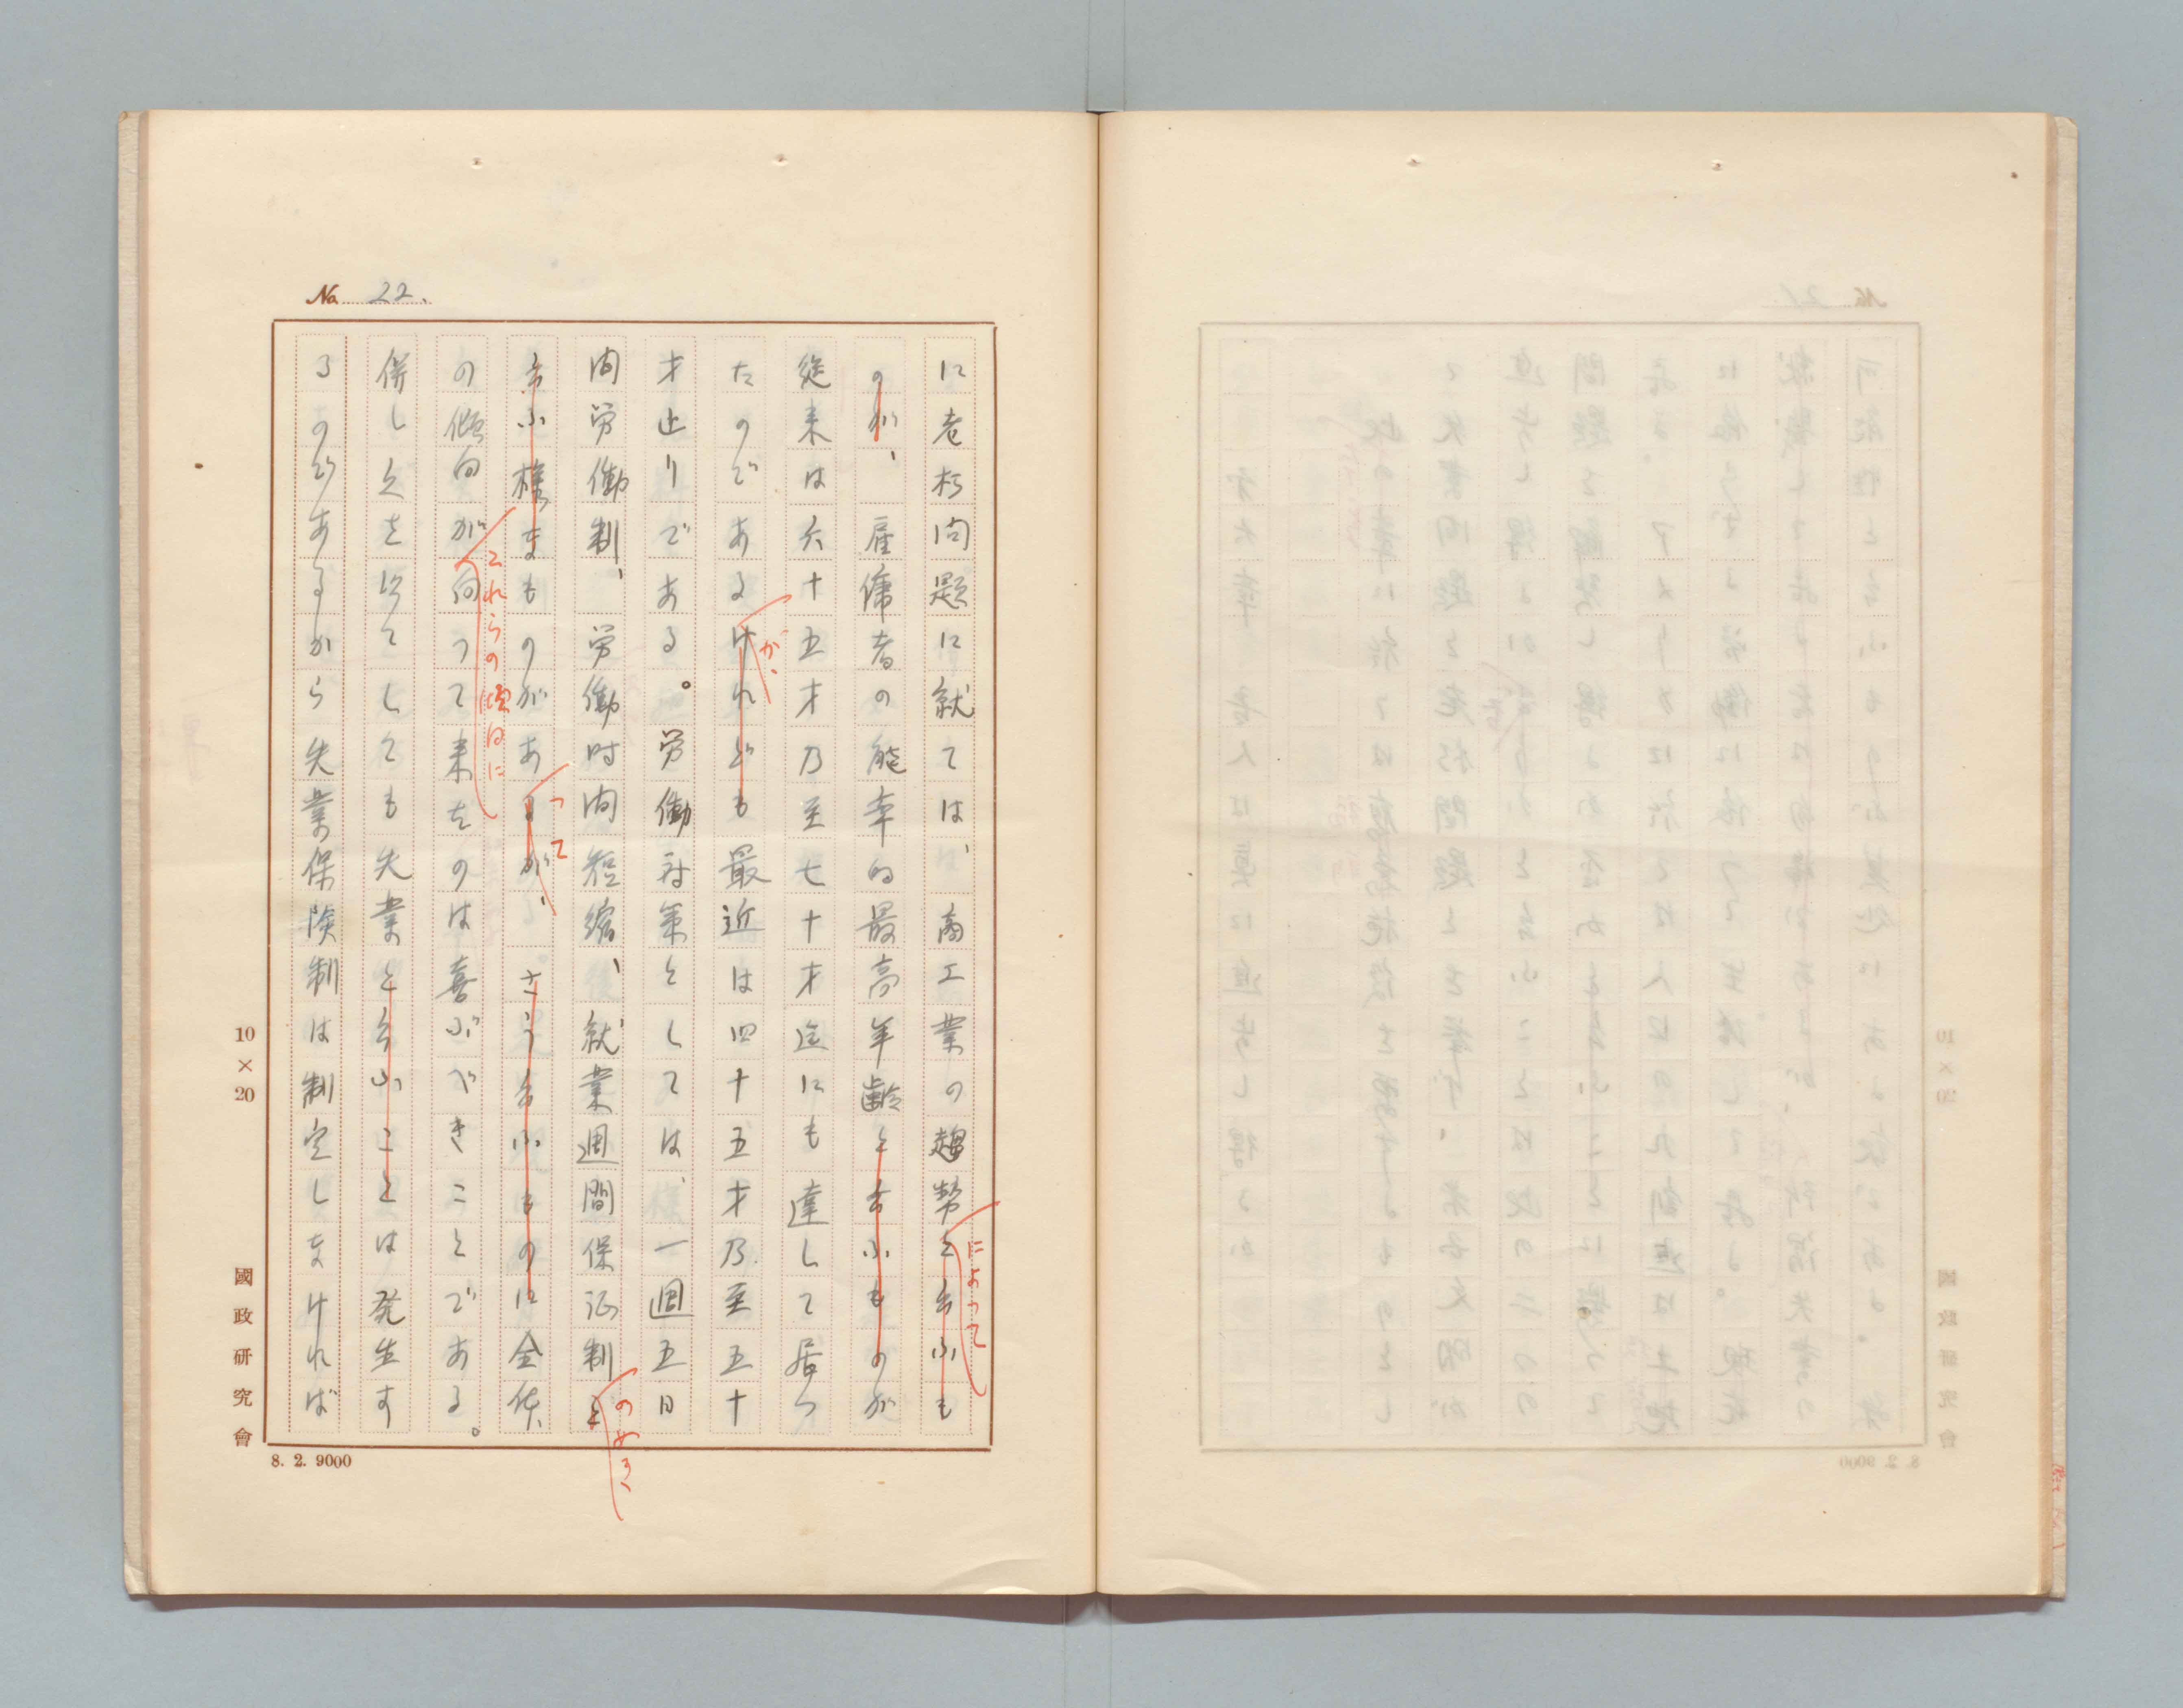 No. 22.
に老朽問題に就ては、商工業の趨勢と云ふも
によって
のが、雇傭者の能率的最高年齢と云ふものが
従来は六十五才乃至七十才迄にも達して居つ
たのであるけれども最近は四十五才乃至五十
が、
才止りである。労働対策としては、一週五日
間労働制、労働時間短縮、就業週間保証制と
の如き、
云ふ様なものがあるが、さう云ふものに全体
って
の傾向が向つて来たのは喜ぶべきことである。
これらの
併し
しても失業と云ふことは発生す
るのであるから失業保険制は制定しなければ
10×20
國政研究會
8. 2. 9000